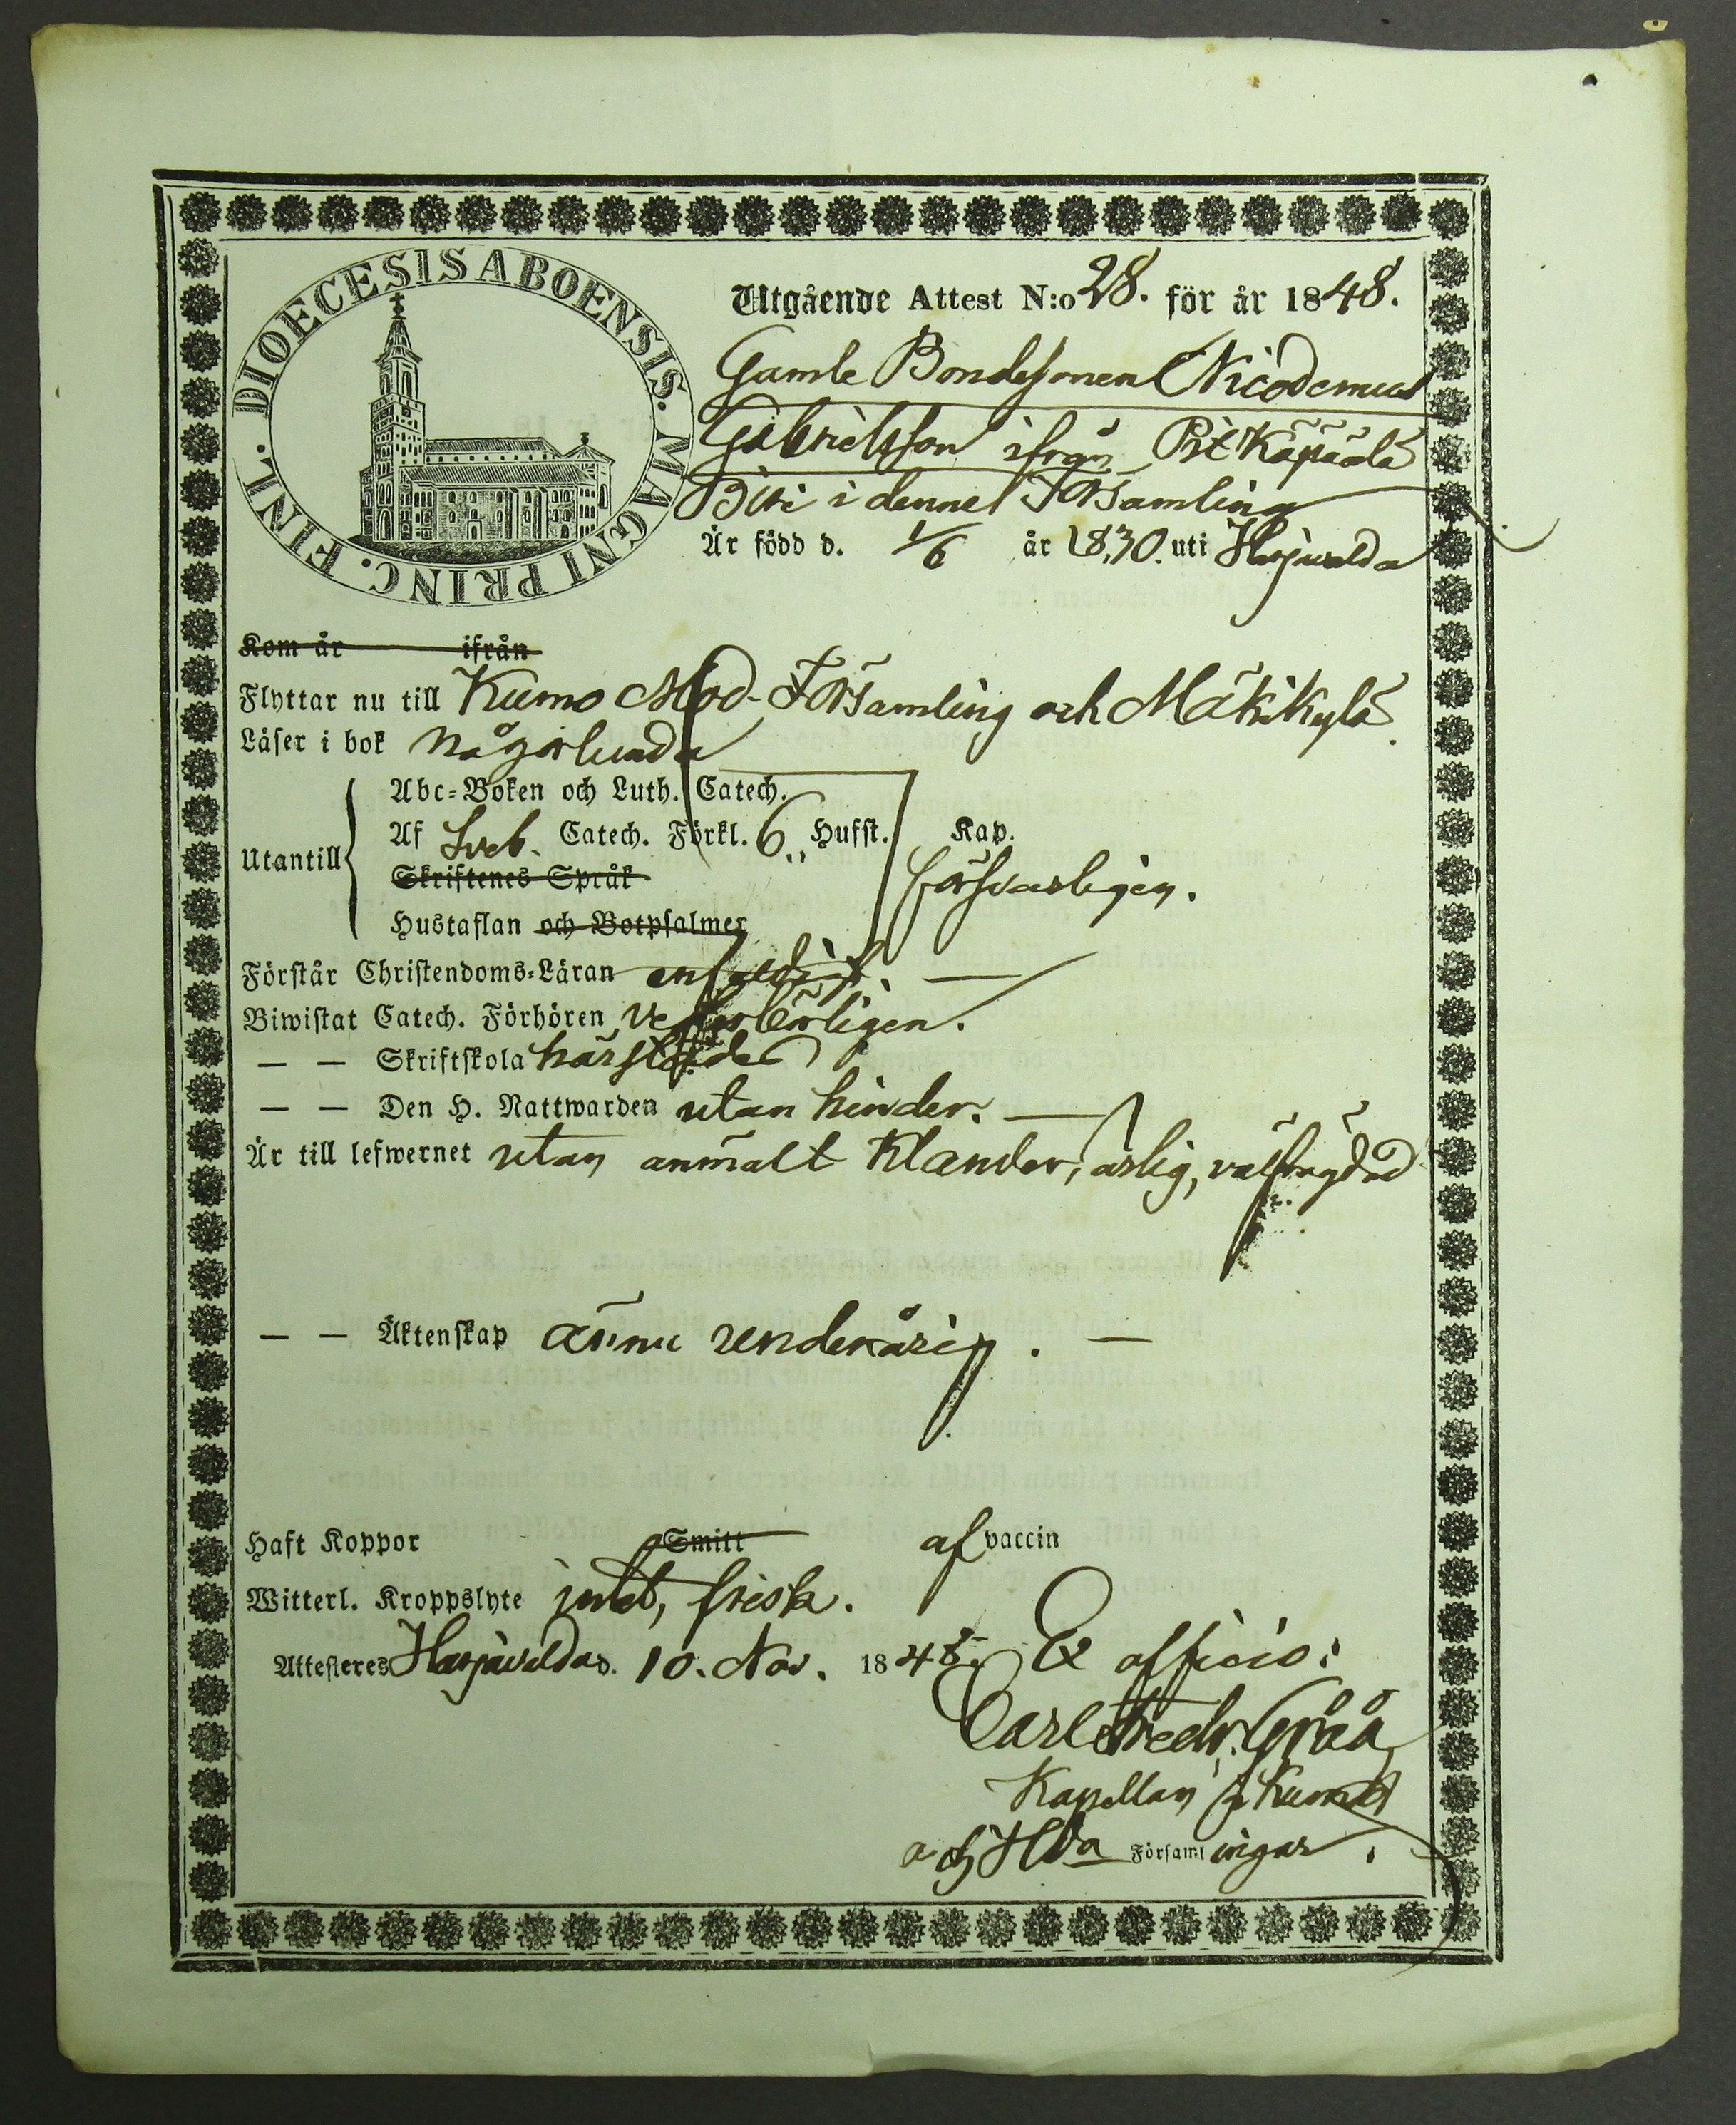 DIOECESIS ABOENSIS. MAGNI PRINC. FINL.
Utgående Attest N:o 28. för år 1848.
Gamle Bondesonen Nicodemus
Gabrielsson ifrån
i denne Församling
Är född d. 1/6 år 1830. uti Harjavalda
Kom år ifrån
Flyttar nu till Kumo Mod-Församling och Mäkikylä
Läser i bok någorlunda
Abc-Boken och Luth. Catech.
Af Sveb. Catech. Förkl. 6 Hufst. Kap.
Utantill
försvarligen.
Skriftenes Språk
Hustaflan och Botpsalmer
Förstår Christendoms-Läran enfaldigt.
Biwistat Catech. Förhören vederbörligen.
— — Skriftskola härstädes
— — Den H. Nattwarden utan hinder.
Är till lefwernet utan anmält klander, ärlig, välfrägdad
— — Äktenskap ännu underårig.
Haft Koppor Smitt af vaccin
Witterl. Kroppslyte intet, frisk.
Attesteres Harjavalda d. 10. Nov. 1848. Ex officio:
Carl Fredr. Gråå
Kapellan i Kumo
och Hlda Församlingar.